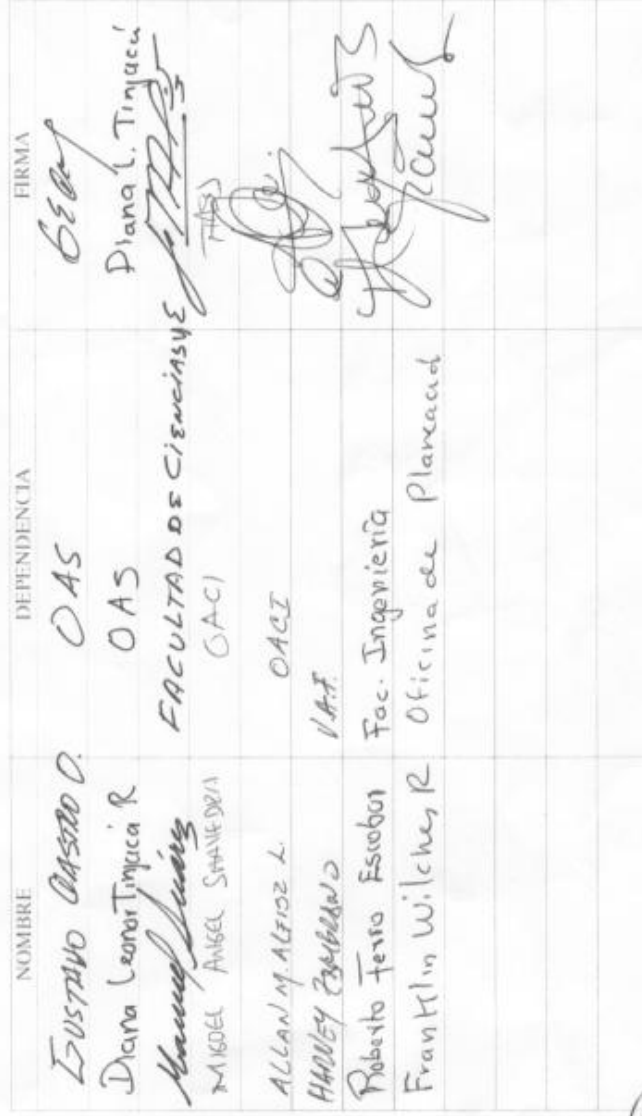 NOMBRE DEPENDENCIA FIRMA
GUSTAVO CASTRO O. OAS
Diana Leonor Tinjacá R OAS Diana L. Tinjacá
Manuel Suárez FACULTAD DE CIENCIAS y E
MIGUEL ANGEL SAAVEDRA OACI
ALLAN M. L. OACI
HARVEY ZAMBRANO V.A.F.
Roberto Ferro Escobar Fac. Ingeniería
Franklin Wilches R Oficina de Planeació